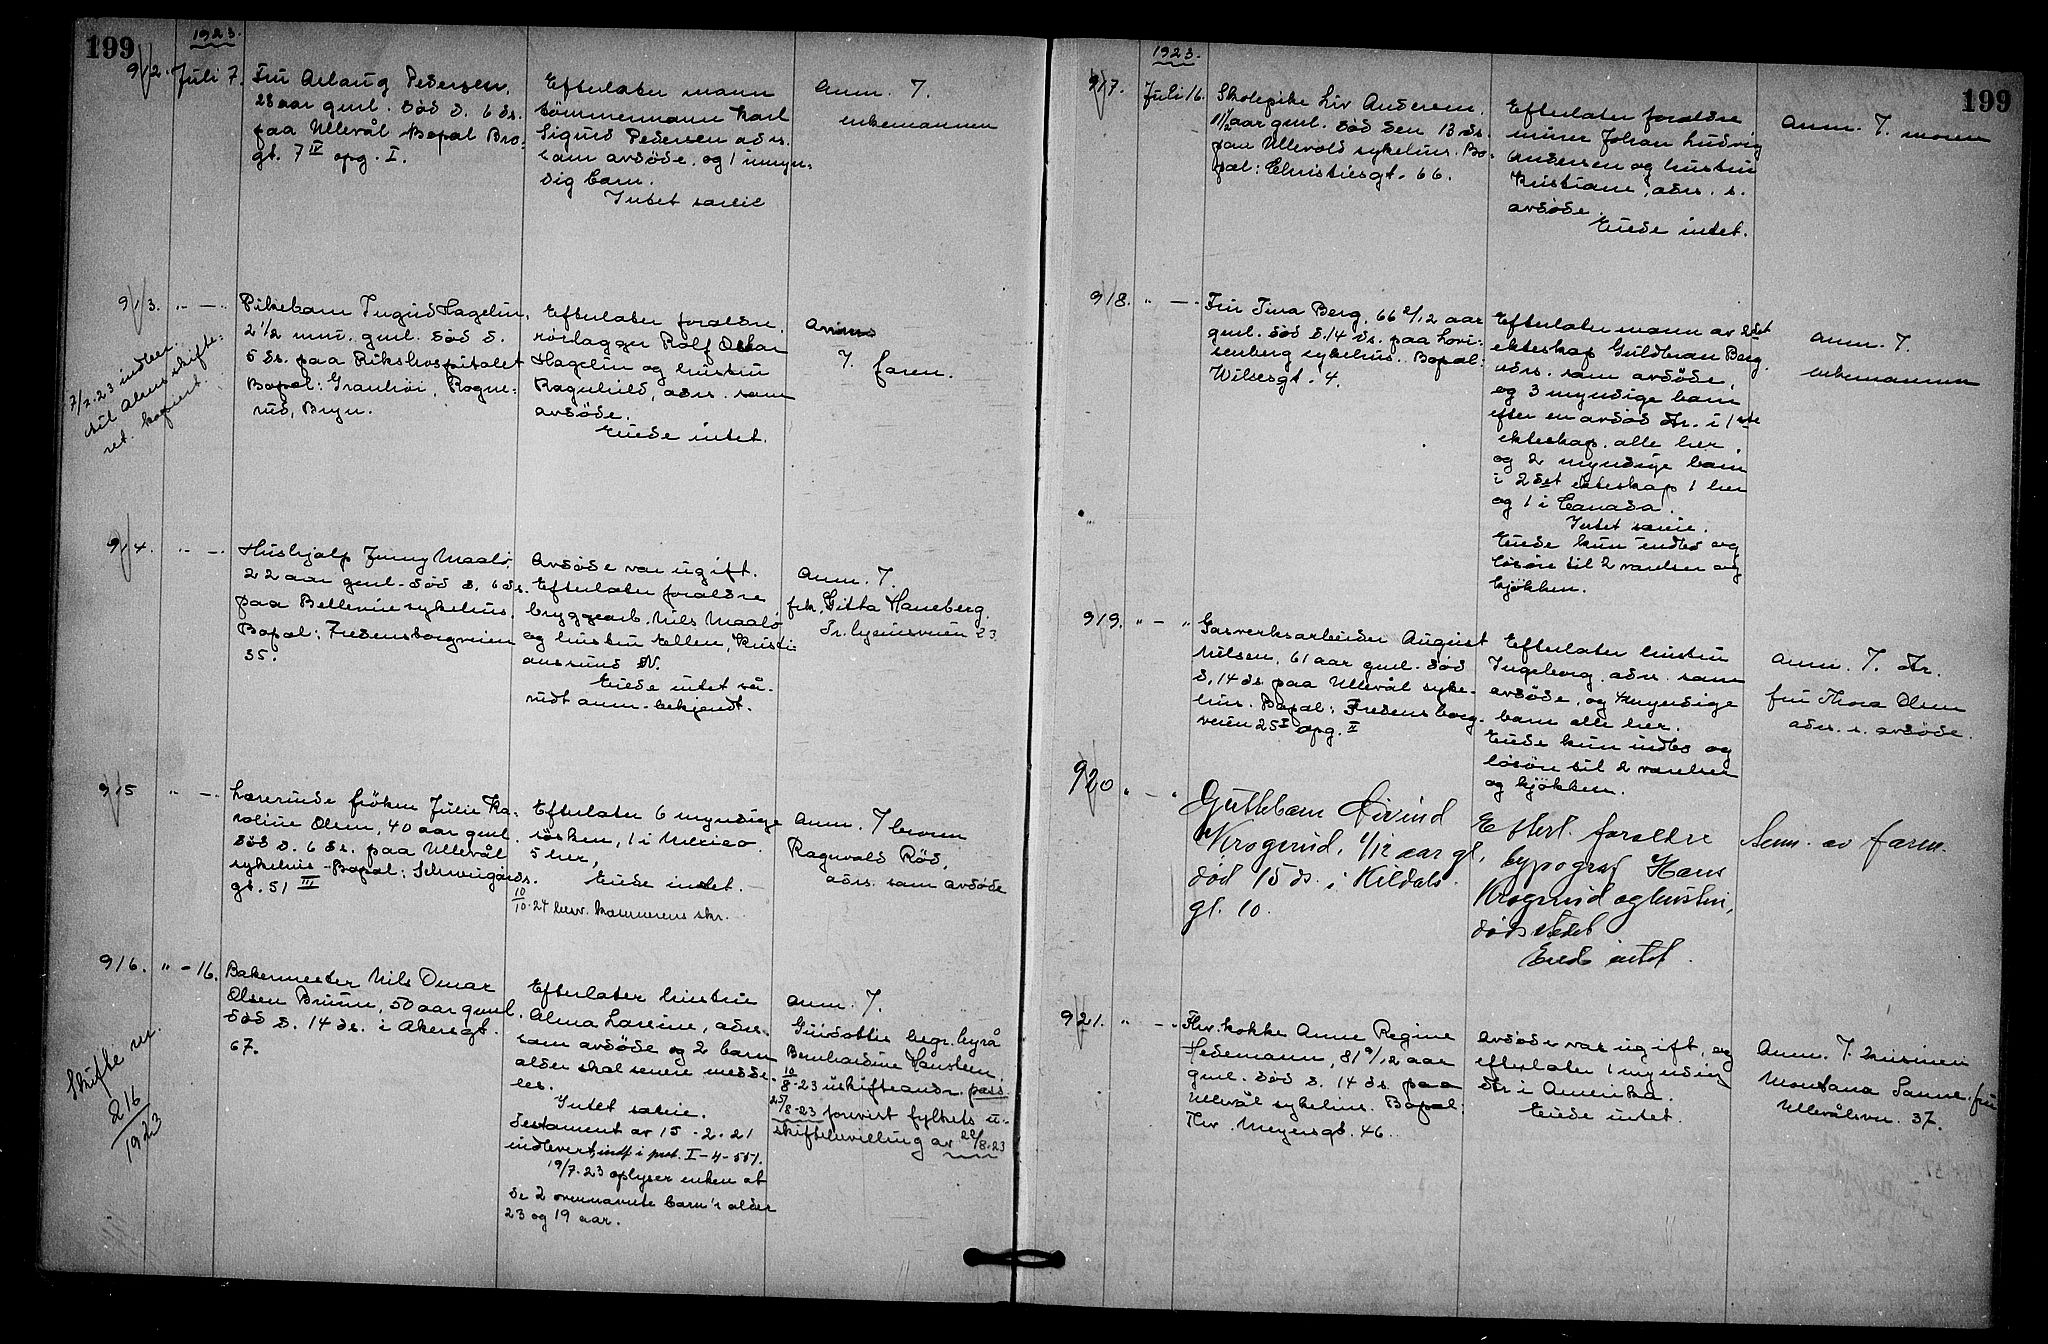 199
1923.
912. Juli 7.
Fru Aslaug Pedersen,
28 aar gml. död d. 6 ds.
paa Ullevål Bopæl Bro-
gt. 7 IV opg. I.
Efterlater mann
tömmermann Karl
Sigurd Pedersen adrs.
som avdöde, og 1 umyn-
dig barn.
Intet særeie
Anm. T.
enkemannen
913. " — "
7/2.23 indber.
til Akers skifte-
ret. kopiert.
Pikebarn Ingrid Hagelin,
2 1/2 mnd. gml. död d.
5 ds. paa Rikshospitalet
Bopæl: Granhöi, Rogne-
rud, Bryn.
Efterlater forældre,
rörlægger Rolf Oskar
Hagelin og hustru
Ragnhild, adrs. som
avdöde.
Eiede intet.
Anm.
T. faren.
914. " — "
Hushjælp Jenny Maalö,
22 aar gml. död d. 6 ds.
paa Bellevue sykehus.
Bopæl: Fredensborgveien
55.
Avdöde var ugift.
Efterlater forældre
bryggearb. Nils Maalö
og hustru Ellen, Kristi-
anssund N.
Eiede intet så-
vidt anm. bekjendt.
Anm. T.
frk. Gitta Haneberg,
Tr.hjemsveien 23
915 " — "
Lærerinde fröken Julie Ka-
roline Olsen, 40 aar gml.
död d. 6 ds. paa Ullevål
sykehus - Bopæl: Schweigaards-
gt. 51 III
Efterlater 6 myndige
sösken, 1 i Mexico
5 her,
Eiede intet.
10/10-24 besv. kæmnerens skr.
Anm. T broren
Ragnvald Röd,
adrs. som avdöde
916. " - 16.
Skifte nr.
216/1923
Bakermester Nils Omar
Olsen Bruun, 50 aar gml.
död d. 14 ds. i Akersgt.
67.
Efterlater hustru
Alma Lovine, adrs.
som avdöde og 2 barn
alder skal senere medde-
les.
Intet særeie.
Testament av 15-2-21
indlevert, indf i prot. I-4-551.
19/7-23 oplyser enken at
de 2 ovennævnte barn's alder
23 og 19 aar.
Anm. T.
Guidottis begr. byrå
Bernhardine Hansteen.
10/8-23 uskifteandr. pass.
25/8-23 forevist fylkets u-
skiftebevilling av 22/8-23
199
1923.
917. Juli 16.
Skolepike Liv Andersen,
11 1/2 aar gml. död den 13 ds.
paa Ullevold sykehus. Bo-
pæl: Christiesgt. 66.
Efterlater forældre,
murer Johan Ludvig
Andersen og hustru
Kristiane, adrs. s.
avdöde.
Eiede intet.
Anm. T. moren
918. " — "
Fru Tina Berg, 66 2/12 aar
gml. död d. 14 ds. paa Lovi-
senberg sykehus. Bopæl:
Wilsesgt. 4.
Efterlater mann av 2det
ekteskap Guldbran Berg.
adrs. som avdöde,
og 3 myndige barn
efter en avdöd dtr. i 1ste
ekteskap, alle her,
og 2 myndige barn
i 2det ekteskap 1 her
og 1 i Canada.
Intet særeie.
Eiede kun indbo og
lösöre til 2 værelser og
kjökken.
Anm. T
enkemannen
919. " — "
Gasverksarbeider August
Nilsen, 61 aar gml. död
d. 14 ds paa Ullevål syke-
hus. Bopæl: Fredensborg-
veien 25 I opg. II
Efterlater hustru
Ingeborg, adrs. som
avdöde, og 4 myndige
barn alle her.
Eiede kun indbo og
lösöre til 2 værelser
og kjökken.
Anm. T. dtr.
fru Thora Olsen
adrs. s. avdöde.
920 " — "
Guttebarn Øivind
Krogsrud, 1/12 aar gl,
død 15 ds. i Kildals
gt. 10.
Efterl. forældre
typograf Hans
Krogsrud og hustru,
dødsstedet
Eiede intet.
Anm. av faren.
921. " — "
Fhv. kokke Anne Regine
Hedemann, 81 9/12 aar
gml. död d. 14 ds. paa
Ullevål sykehus. Bopæl:
Thv. Meyersgt. 46.
Avdöde var ugift, og
efterlater 1 myndig
dtr i Amerika.
Eiede intet.
Anm. T. kusinen
Montana Sanne, fru
Ullevålsvn. 37.